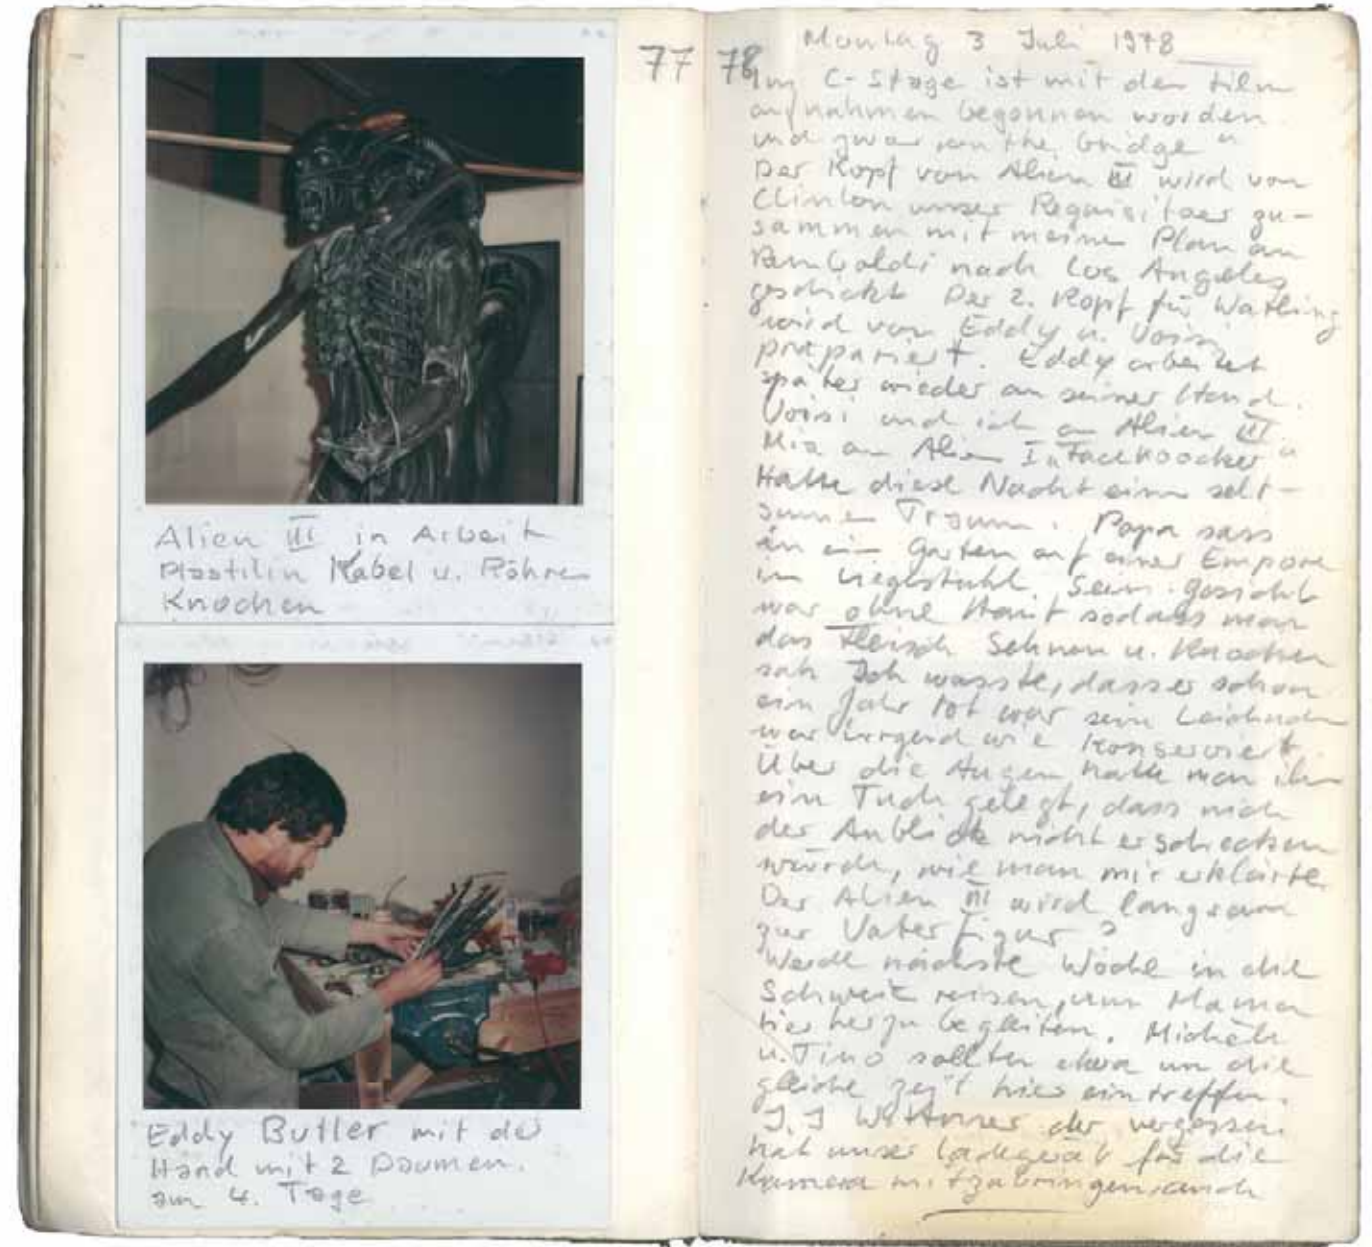 Alien III in Arbeit
Plastilin Kabel u. Röhren
Knochen
Eddy Butler mit der
Hand mit 2 Daumen.
am 4. Tage
77 78
Montag 3 Juli 1978
Im C-Stage ist mit den Film
aufnahmen begonnen worden
und zwar „on the bridge"
Der Kopf von Alien III wird von
Clinton unser Requisiteur zu-
sammen mit meinen Plan an
Rambaldi nach Los Angeles
geschickt Der 2. Kopf für Watling
wird von Eddy u. Voisi
präpariert. Eddy arbeitet
später wieder an seiner Hand.
Voisi und ich an Alien III
Mia an Alien I „Facehoocker"
Hatte diese Nacht einen selt-
samen Traum. Papa sass
in ein Garten auf einer Empore
im Liegestuhl. Sein Gesicht
war ohne Haut sodass man
das Fleisch Sehnen u. Knochen
sah Ich wusste, dass er schon
ein Jahr tot war sein Leichnam
war irgend wie konserviert.
Über die Augen hatte man ihm
ein Tuch gelegt, dass mich
der Anblick nicht erschrecken
würde, wie man mir erklärte.
Der Alien III wird langsam
zur Vater figur?
Werde nächste Woche in die
Schweiz reisen, um Mama
hierher zu begleiten. Michèle
u. Tino sollten etwa um die
gleiche Zeit hier eintreffen.
J.J Wittmer der vergessen
hat unser Ladegerät für die
Kamera mitzubringen, auch